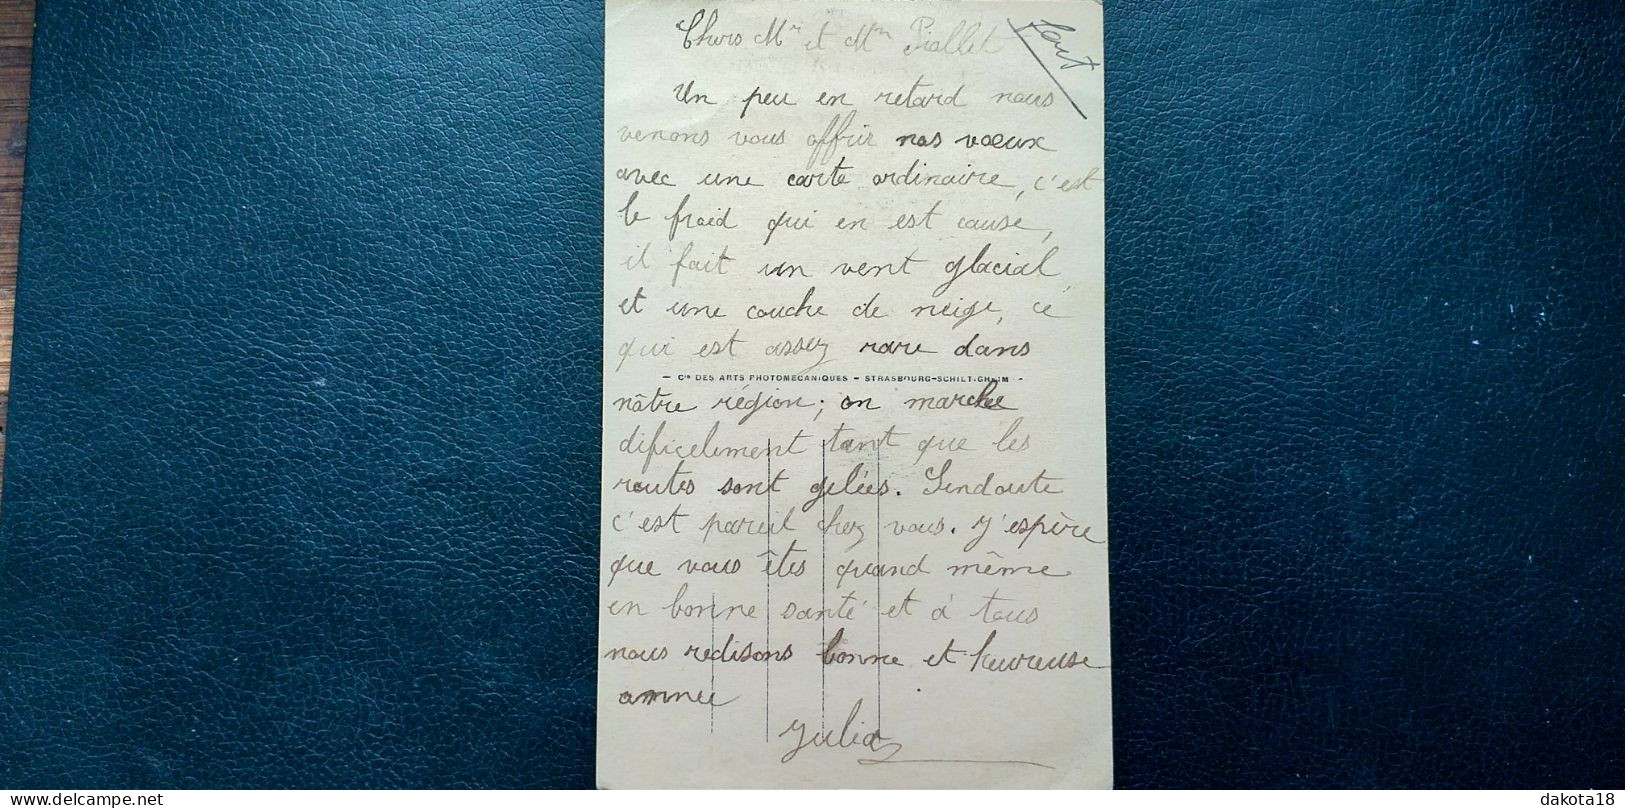 Chers Mr et Mm Piallet
fait
Un peu en retard nous
venons vous offrir nos vœux
avec une carte ordinaire, c'est
le froid qui en est cause,
il fait un vent glacial
et une couche de neige, ce
qui est assez rare dans
- Cie DES ARTS PHOTOMECANIQUES - STRASBOURG-SCHILTIGHEIM -
nôtre région; on marche
dificelement tant que les
routes sont gelées. Sendoute
c'est pareil chez vous. J'espère
que vous êtes quand même
en bonne santé et à tous
nous redisons bonne et heureuse
année
Julia
delcampe.net
dakota18